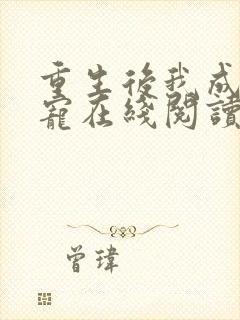 重生後我成
寵在綫閱讀
曾瑋